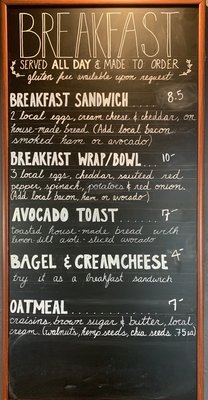 BREAKFAST
SERVED ALL DAY & MADE TO ORDER
gluten free available upon request
BREAKFAST SANDWICH ..... 8.5
2 local eggs, cream cheese & cheddar, on
house-made bread. (Add local bacon
smoked ham or avocado)
BREAKFAST WRAP/BOWL ... 10-
3 local eggs, cheddar, sautéed red
pepper, spinach, potatoes & red onion.
(Add local bacon, ham or avocado)
AVOCADO TOAST ..... 7-
toasted house-made bread with
lemon-dill aioli - sliced avocado
BAGEL & CREAMCHEESE 4-
try it as a breakfast sandwich
OATMEAL ..... 7-
craisins, brown sugar & butter, local
cream. (walnuts, hemp seeds, chia seeds .75 ea)